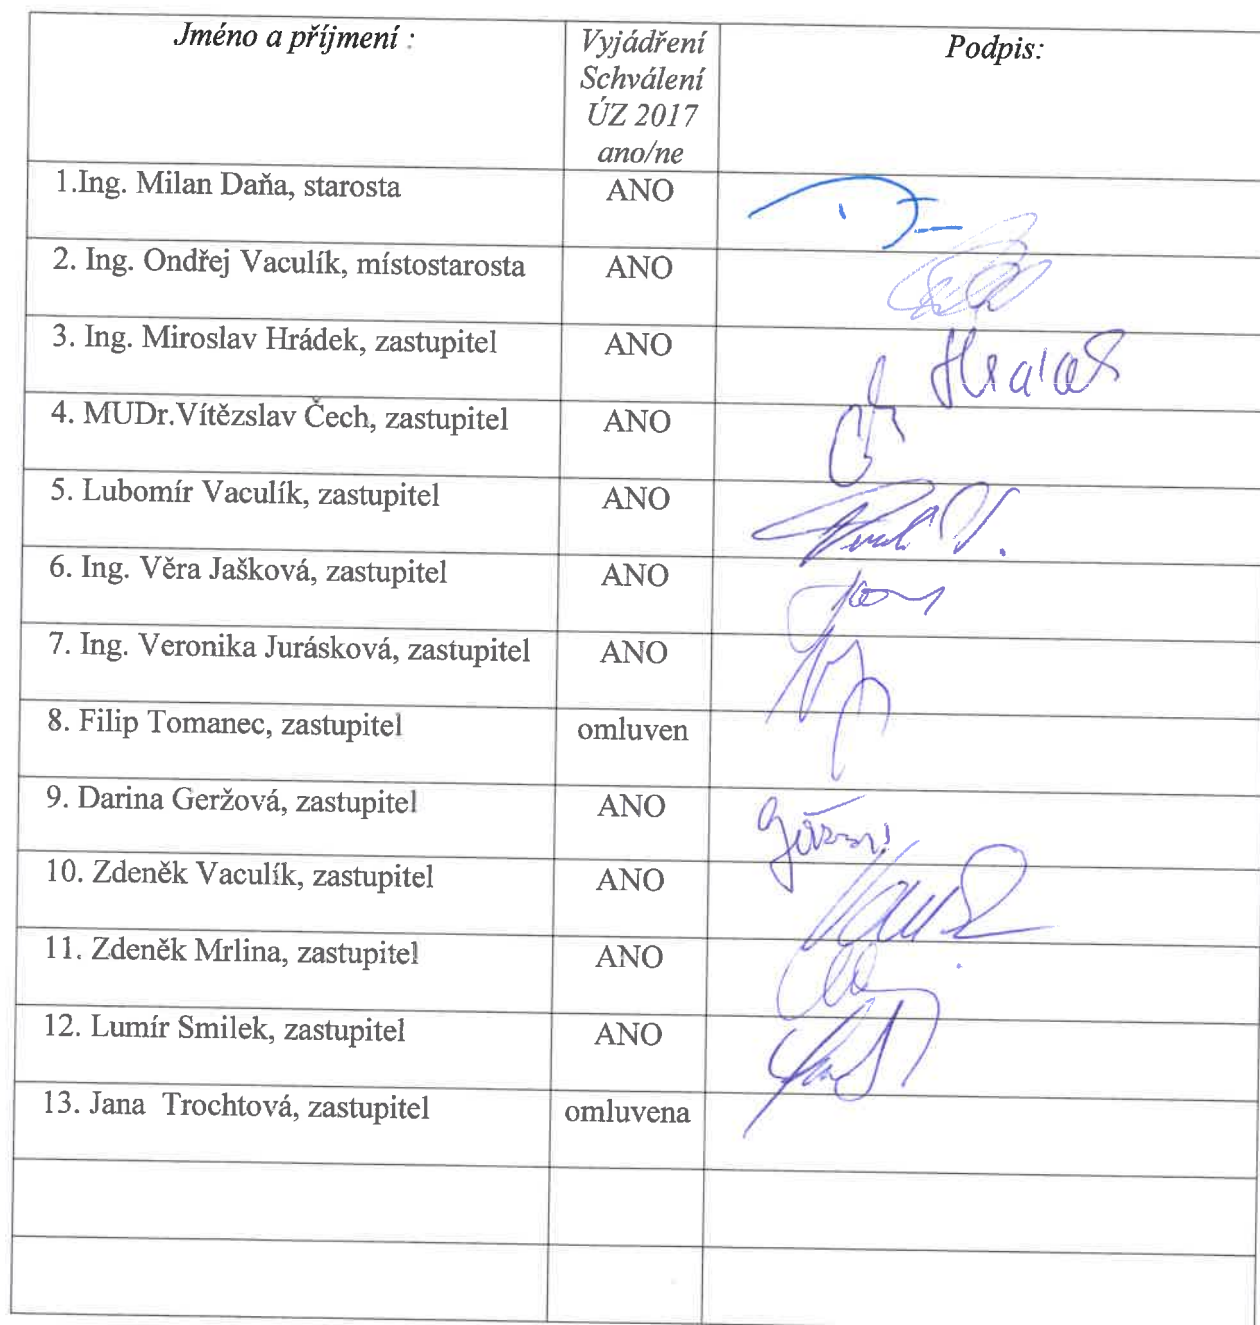 Jméno a příjmení :
Vyjádření
Schválení
ÚZ 2017
ano/ne
Podpis:
1.Ing. Milan Daňa, starosta
ANO
2. Ing. Ondřej Vaculík, místostarosta
ANO
3. Ing. Miroslav Hrádek, zastupitel
ANO
4. MUDr.Vítězslav Čech, zastupitel
ANO
5. Lubomír Vaculík, zastupitel
ANO
6. Ing. Věra Jašková, zastupitel
ANO
7. Ing. Veronika Jurásková, zastupitel
ANO
8. Filip Tomanec, zastupitel
omluven
9. Darina Geržová, zastupitel
ANO
10. Zdeněk Vaculík, zastupitel
ANO
11. Zdeněk Mrlina, zastupitel
ANO
12. Lumír Smilek, zastupitel
ANO
13. Jana Trochtová, zastupitel
omluvena